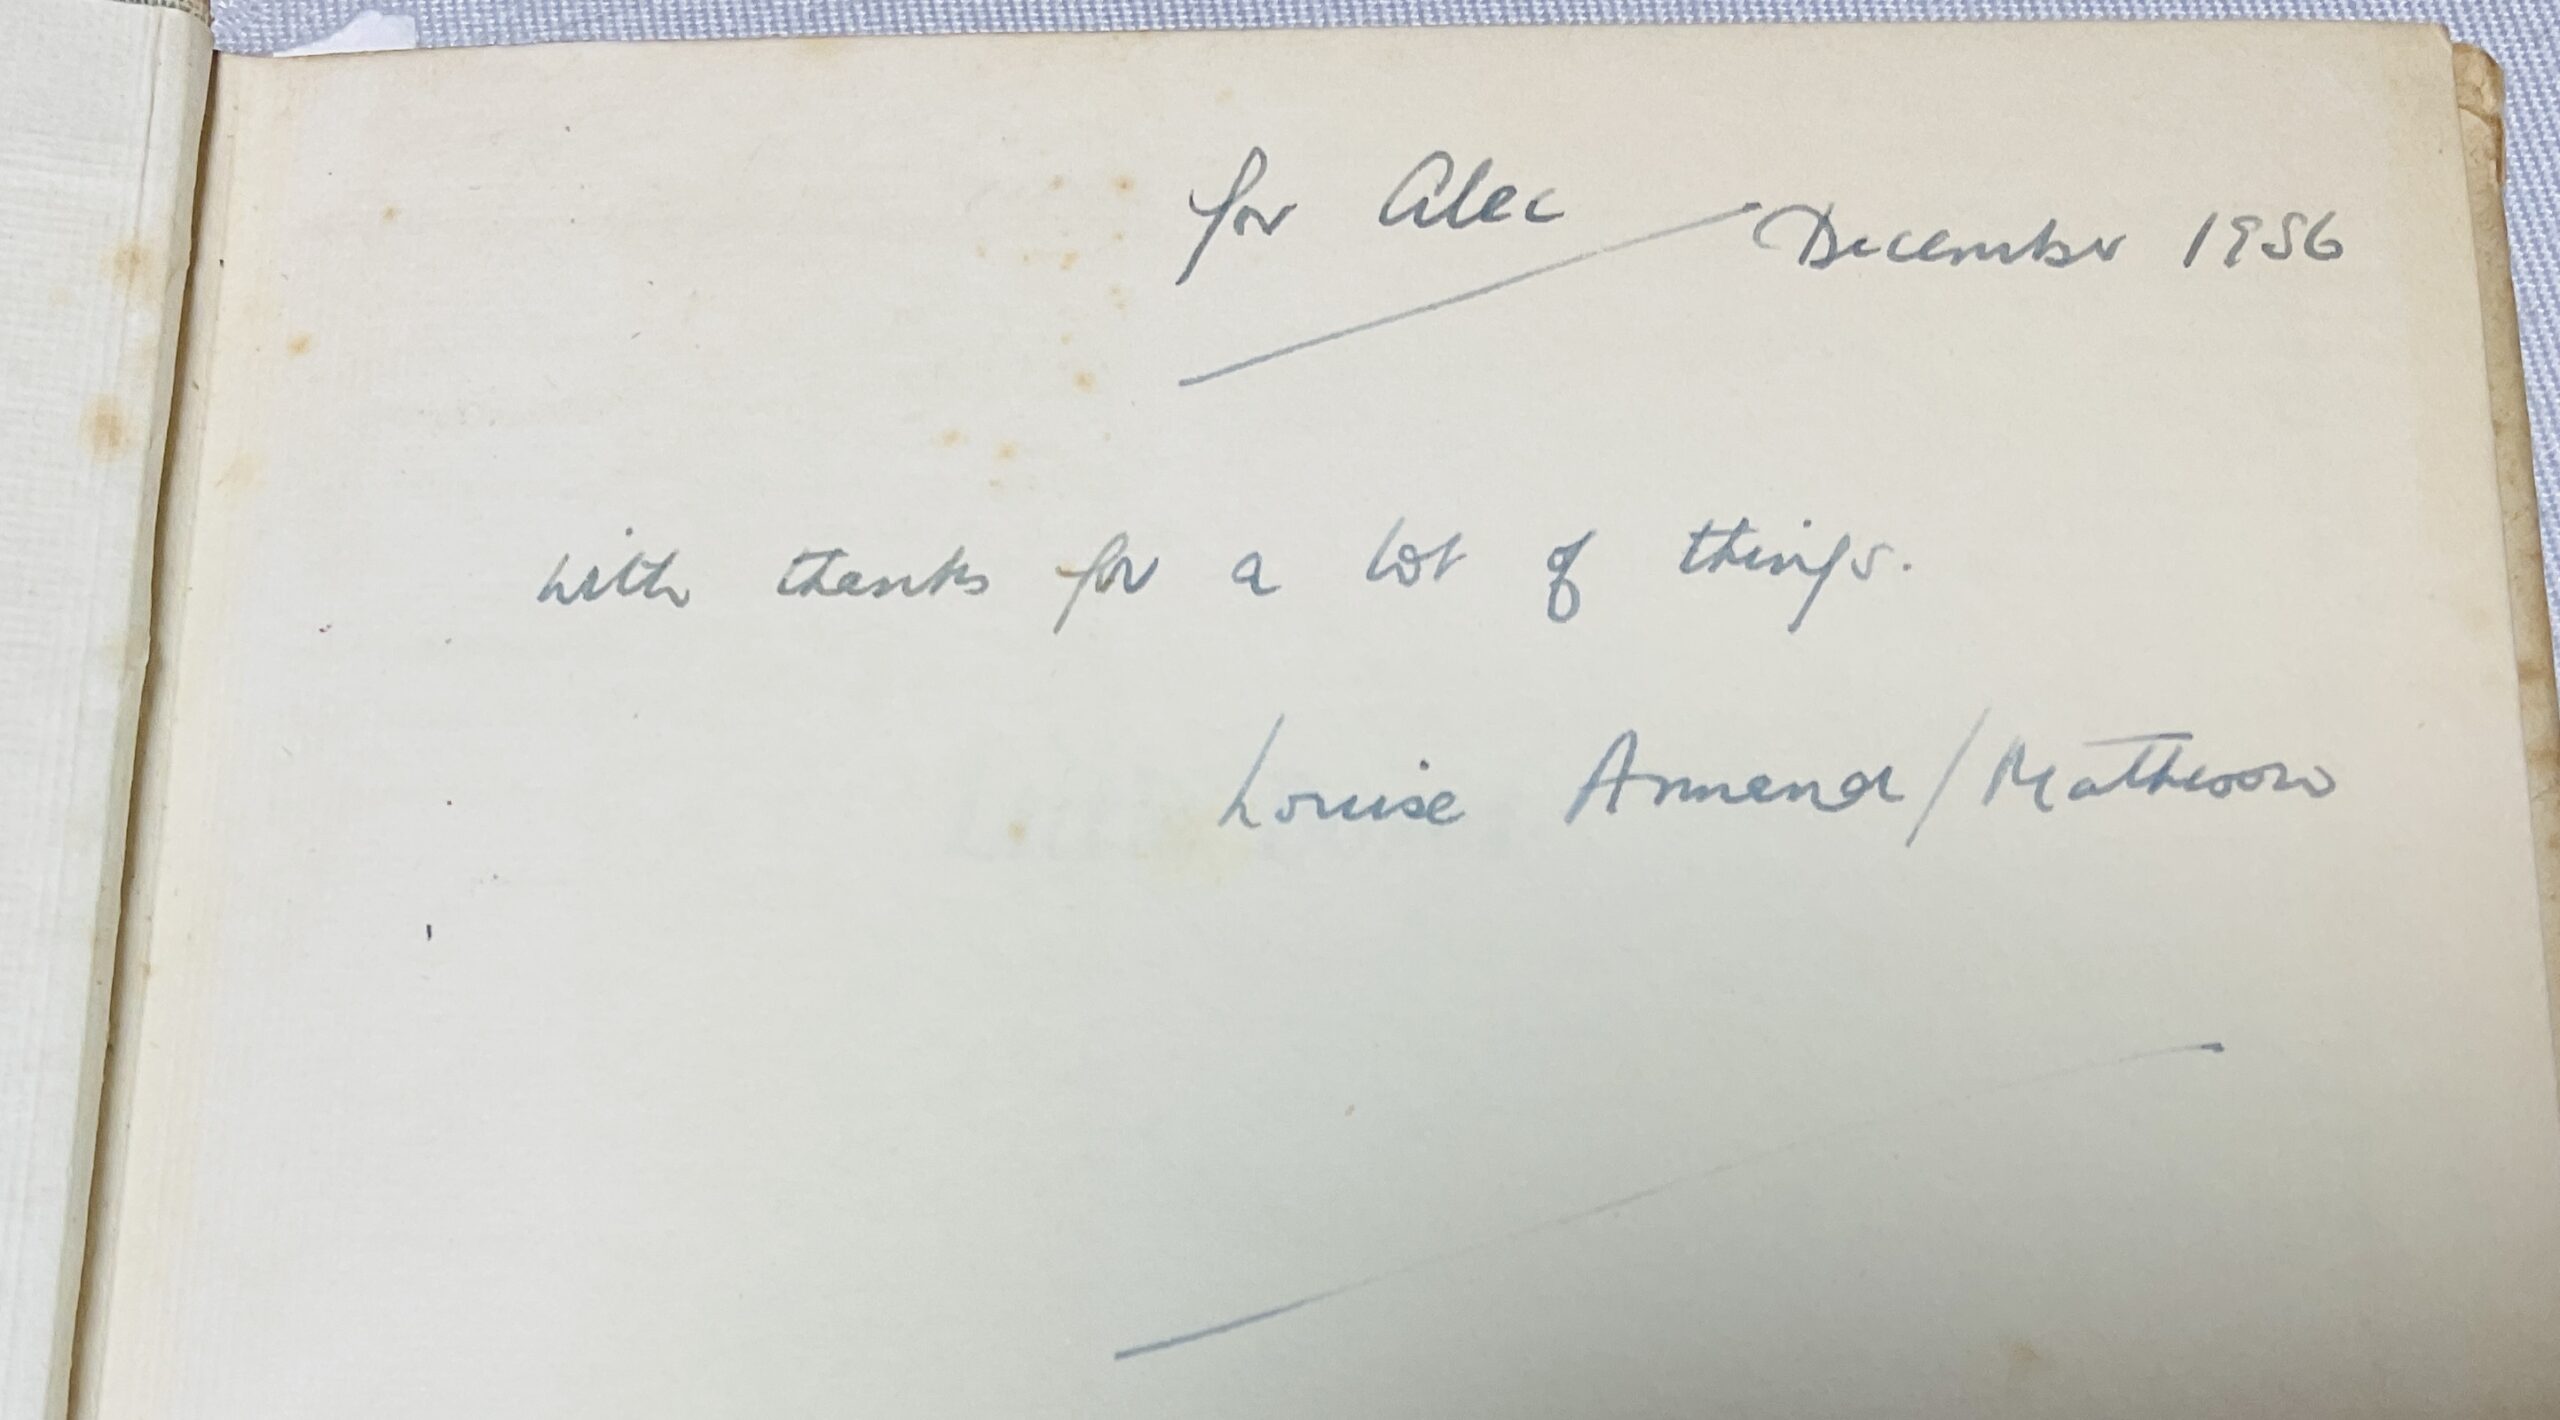 for Alec
December 1956
with thanks for a lot of things.
Louise Armend / Matheson